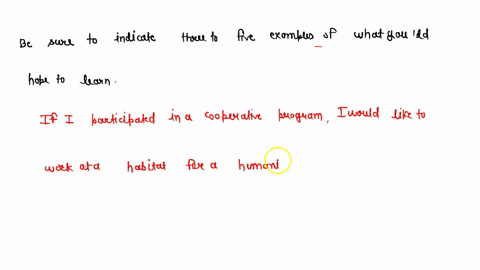 Be sure to indicate three to five examples of what you'ld
hope to learn.
If I participated in a cooperative program, I would like to
work at a habitat for a humani